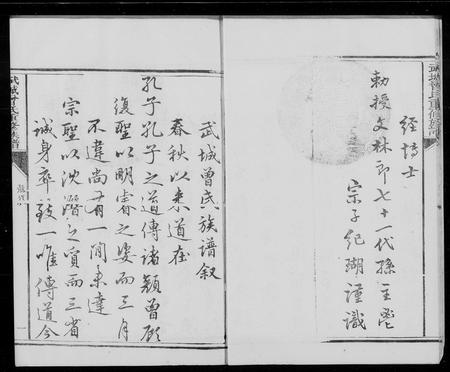 經博士
勅授文林郎七十一代孫主鬯
宗子紀瑚謹識
武城曾氏重修族譜
武城曾氏族譜叙
春秋以來道在
孔子孔子之道傳諸顏曾顧
復聖以明睿之姿而三月
不違尚有一間未達
宗聖以沈潛之質而三省
誠身卒致一唯傳道今
武城曾氏重修族譜